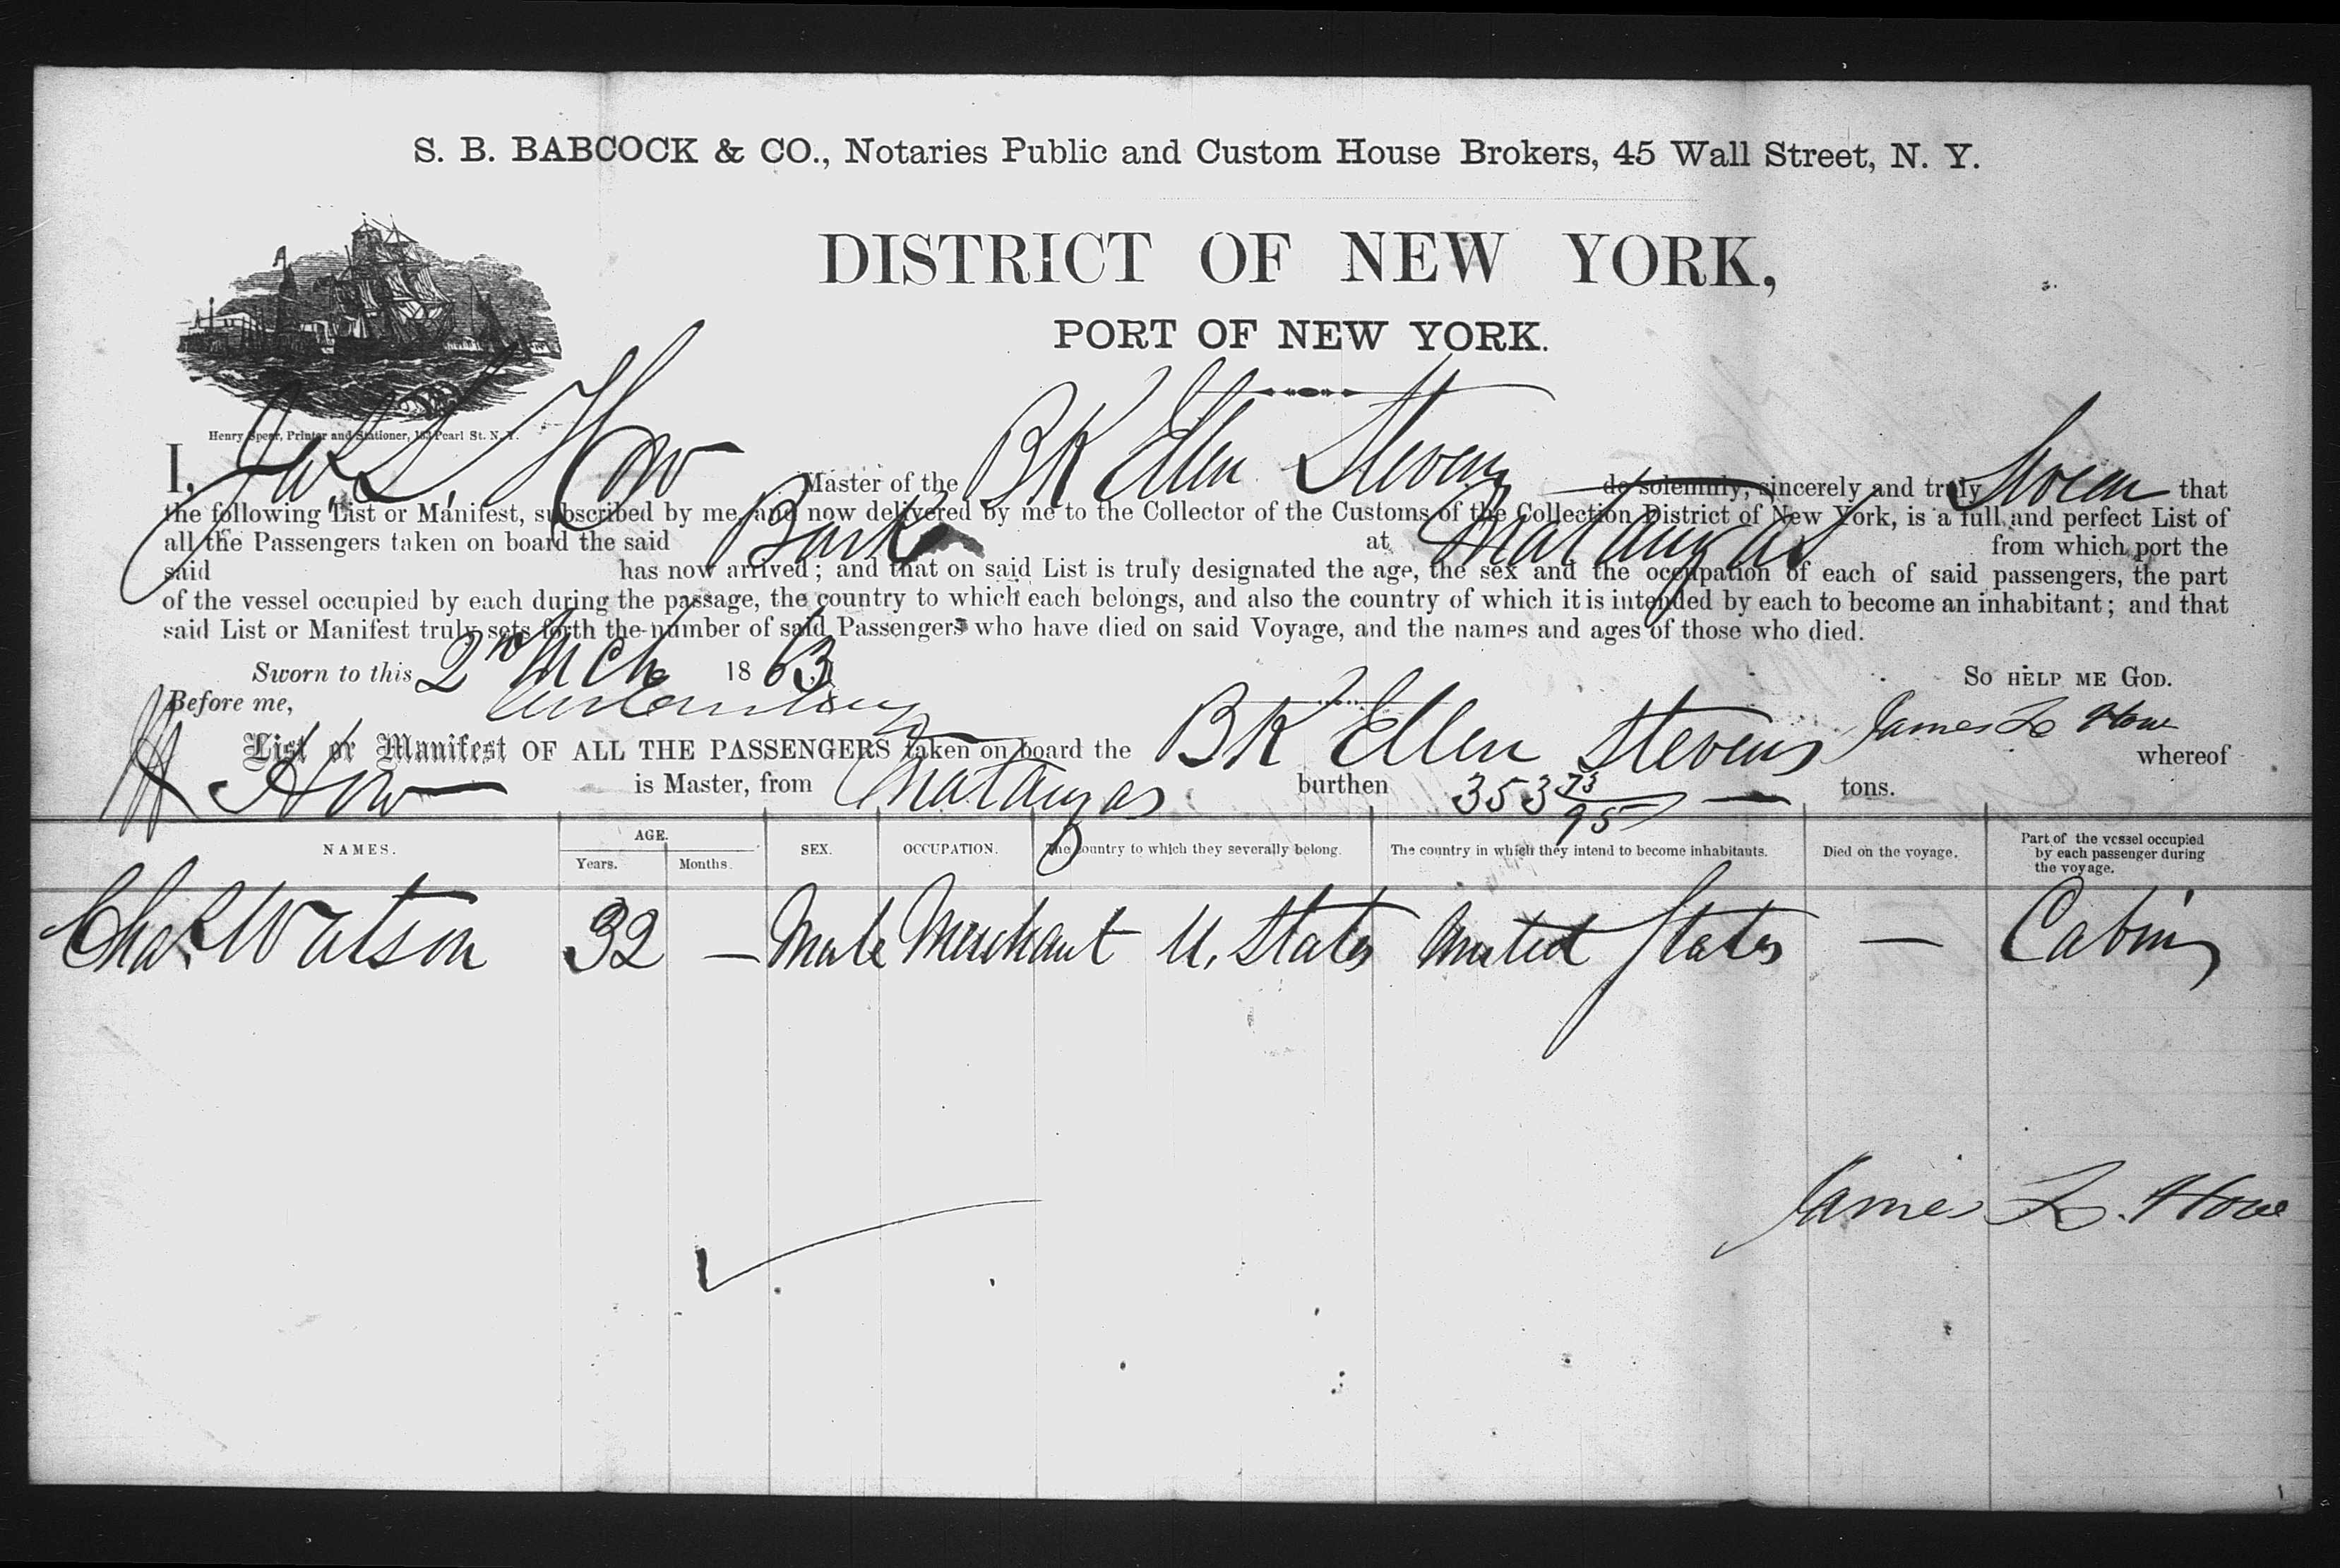 S. B. BABCOCK & CO., Notaries Public and Custom House Brokers, 45 Wall Street, N. Y.
DISTRICT OF NEW YORK,
PORT OF NEW YORK.
Henry Spear, Printer and Stationer, 152 Pearl St. N. Y.
I, Jas L How Master of the BK Ellen Stevens do solemnly, sincerely and truly Swear that
the following List or Manifest, subscribed by me, and now delivered by me to the Collector of the Customs of the Collection District of New York, is a full and perfect List of
all the Passengers taken on board the said Bark at Matanzas from which port the
said has now arrived; and that on said List is truly designated the age, the sex and the occupation of each of said passengers, the part
of the vessel occupied by each during the passage, the country to which each belongs, and also the country of which it is intended by each to become an inhabitant; and that
said List or Manifest truly sets forth the number of said Passengers who have died on said Voyage, and the names and ages of those who died.
Sworn to this 2nd Mch 1863 SO HELP ME GOD.
Before me,
James L Howe
List or Manifest OF ALL THE PASSENGERS taken on board the BK Ellen Stevens whereof
How is Master, from Matanzas burthen 353 73/95 tons.
NAMES. AGE. Years. Months. SEX. OCCUPATION. The country to which they severally belong. The country in which they intend to become inhabitants. Died on the voyage. Part of the vessel occupied by each passenger during the voyage.
Chas Watson 32 — Male Merchant U. States United States — Cabin
James L. Howe